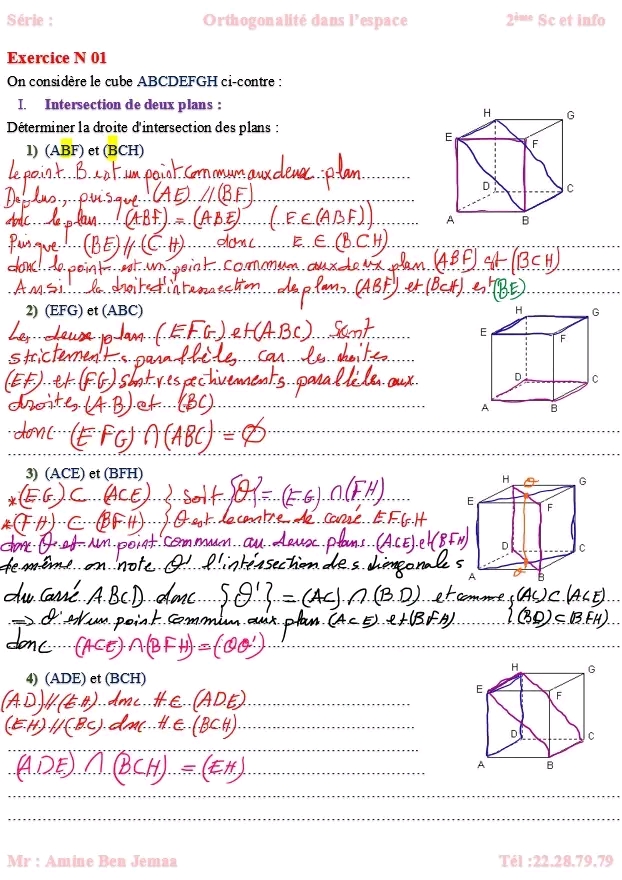 Série : Orthogonalité dans l'espace 2ème Sc et info
Exercice N 01
On considère le cube ABCDEFGH ci-contre :
I. Intersection de deux plans :
Déterminer la droite d'intersection des plans :
1) (ABF) et (BCH)
Le point B est un point commun aux deux plan
De plus, puisque (AE) // (BF)
donc le plan (ABF) = (ABE) (E ∈ (ABF))
Puisque (BE) // (CH) donc E ∈ (BCH)
donc le point est un point commun aux deux plan (ABF) et (BCH)
Ainsi la droite d'intersection des plans (ABF) et (BCH) est (BE)
H
G
E
F
D
C
A
B
2) (EFG) et (ABC)
Les deux plan (EFG) et (ABC) sont
strictements parallèles car les droites
(EF) et (FG) sont respectivements parallèles aux
droites (AB) et (BC)
donc (EFG) ∩ (ABC) = ∅
H
G
E
F
D
C
A
B
3) (ACE) et (BFH)
* (EG) ⊂ (ACE) } soit {O} = (EG) ∩ (FH)
* (FH) ⊂ (BFH) } O est le centre de carré EFGH
donc O est un point commun au deux plans (ACE) et (BFH)
de même on note O' l'intérsection des diagonales
du carré ABCD donc {O'} = (AC) ∩ (BD) et comme { (AC) ⊂ (ACE)
=> O' est un point commun aux plan (ACE) et (BFH) { (BD) ⊂ BFH)
donc (ACE) ∩ (BFH) = (OO')
H
O
G
E
F
D
C
A
O'
B
4) (ADE) et (BCH)
(AD) // (EH) donc H ∈ (ADE)
(EH) // (BC) donc H ∈ (BCH)
(ADE) ∩ (BCH) = (EH)
H
G
E
F
D
C
A
B
Mr : Amine Ben Jemaa Tél :22.28.79.79